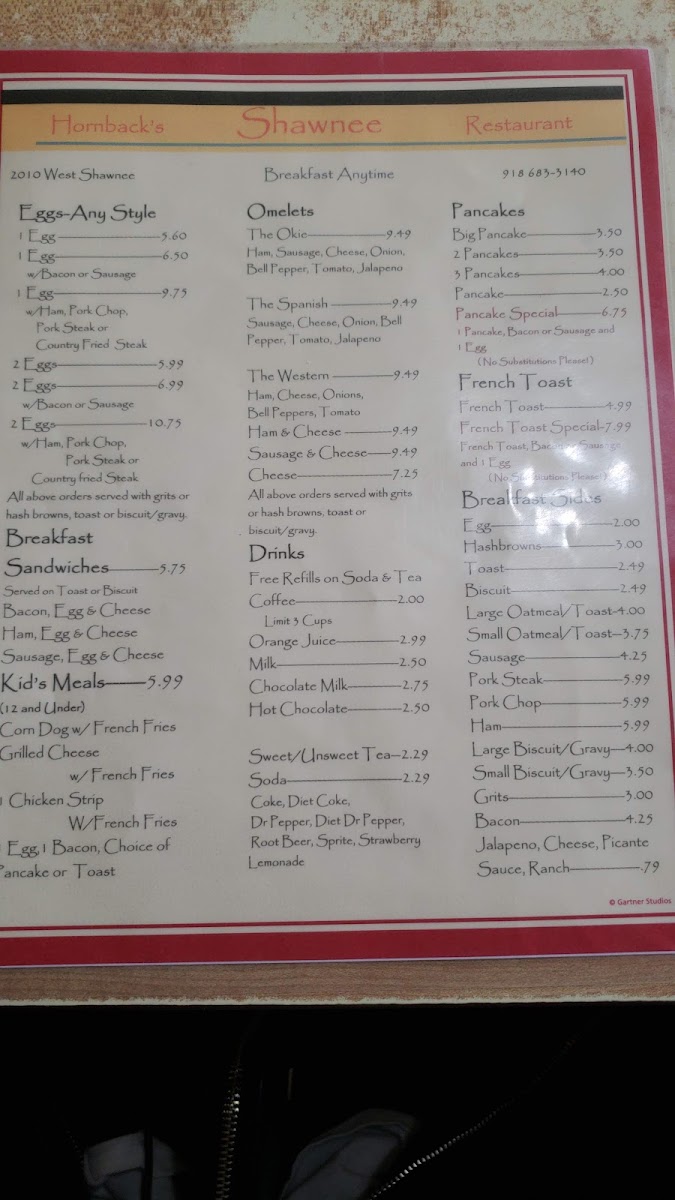 Hornback's Shawnee Restaurant
2010 West Shawnee Breakfast Anytime 918 683-3140
Eggs-Any Style
1 Egg 5.60
1 Egg 6.50
w/Bacon or Sausage
1 Egg 9.75
w/Ham, Pork Chop,
Pork Steak or
Country Fried Steak
2 Eggs 5.99
2 Eggs 6.99
w/Bacon or Sausage
2 Eggs 10.75
w/Ham, Pork Chop,
Pork Steak or
Country fried Steak
All above orders served with grits or
hash browns, toast or biscuit/gravy.
Breakfast
Sandwiches 5.75
Served on Toast or Biscuit
Bacon, Egg & Cheese
Ham, Egg & Cheese
Sausage, Egg & Cheese
Kid's Meals 5.99
(12 and Under)
Corn Dog w/ French Fries
Grilled Cheese
w/ French Fries
1 Chicken Strip
W/French Fries
Egg, 1 Bacon, Choice of
Pancake or Toast
Omelets
The Okie 9.49
Ham, Sausage, Cheese, Onion,
Bell Pepper, Tomato, Jalapeno
The Spanish 9.49
Sausage, Cheese, Onion, Bell
Pepper, Tomato, Jalapeno
The Western 9.49
Ham, Cheese, Onions,
Bell Peppers, Tomato
Ham & Cheese 9.49
Sausage & Cheese 9.49
Cheese 7.25
All above orders served with grits
or hash browns, toast or
biscuit/gravy.
Drinks
Free Refills on Soda & Tea
Coffee 2.00
Limit 3 Cups
Orange Juice 2.99
Milk 2.50
Chocolate Milk 2.75
Hot Chocolate 2.50
Sweet/Unsweet Tea 2.29
Soda 2.29
Coke, Diet Coke,
Dr Pepper, Diet Dr Pepper,
Root Beer, Sprite, Strawberry
Lemonade
Pancakes
Big Pancake 3.50
2 Pancakes 3.50
3 Pancakes 4.00
Pancake 2.50
Pancake Special 6.75
1 Pancake, Bacon or Sausage and
1 Egg
(No Substitutions Please!)
French Toast
French Toast 4.99
French Toast Special-7.99
French Toast, Bacon or Sausage
and 1 Egg
(No Substitutions Please!)
Breakfast Sides
Egg 2.00
Hashbrowns 3.00
Toast 2.49
Biscuit 2.49
Large Oatmeal/Toast-4.00
Small Oatmeal/Toast-3.75
Sausage 4.25
Pork Steak 5.99
Pork Chop 5.99
Ham 5.99
Large Biscuit/Gravy 4.00
Small Biscuit/Gravy 3.50
Grits 3.00
Bacon 4.25
Jalapeno, Cheese, Picante
Sauce, Ranch .79
© Gartner Studios